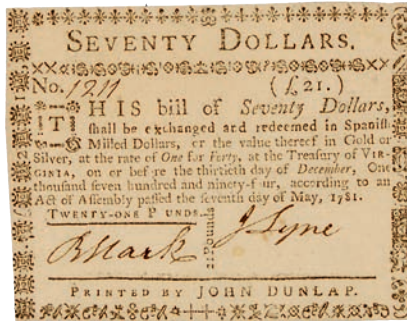 SEVENTY DOLLARS.
No. 1211 (£21.)
THIS bill of Seventy Dollars,
shall be exchanged and redeemed in Spanish
Milled Dollars, or the value thereof in Gold or
Silver, at the rate of One for Forty, at the Treasury of VIR-
GINIA, on or before the thirtieth day of December, One
thousand seven hundred and ninety-four, according to an
Act of Assembly passed the seventh day of May, 1781.
TWENTY-ONE POUNDS
21 Pounds
J Lyne
PRINTED BY JOHN DUNLAP.